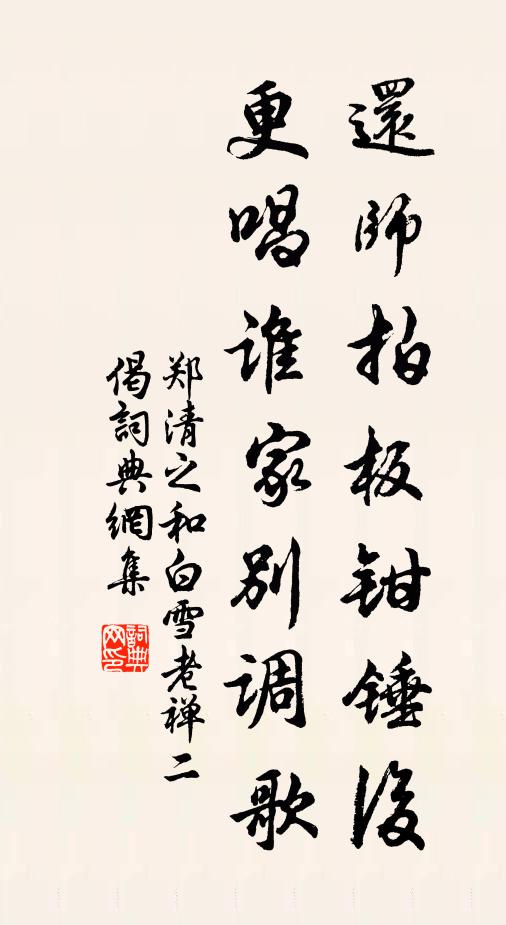 還師拍板鉗錘後
更唱誰家別调歌
郑清之和白雪老禅二
偈詞典網集
詞典網印